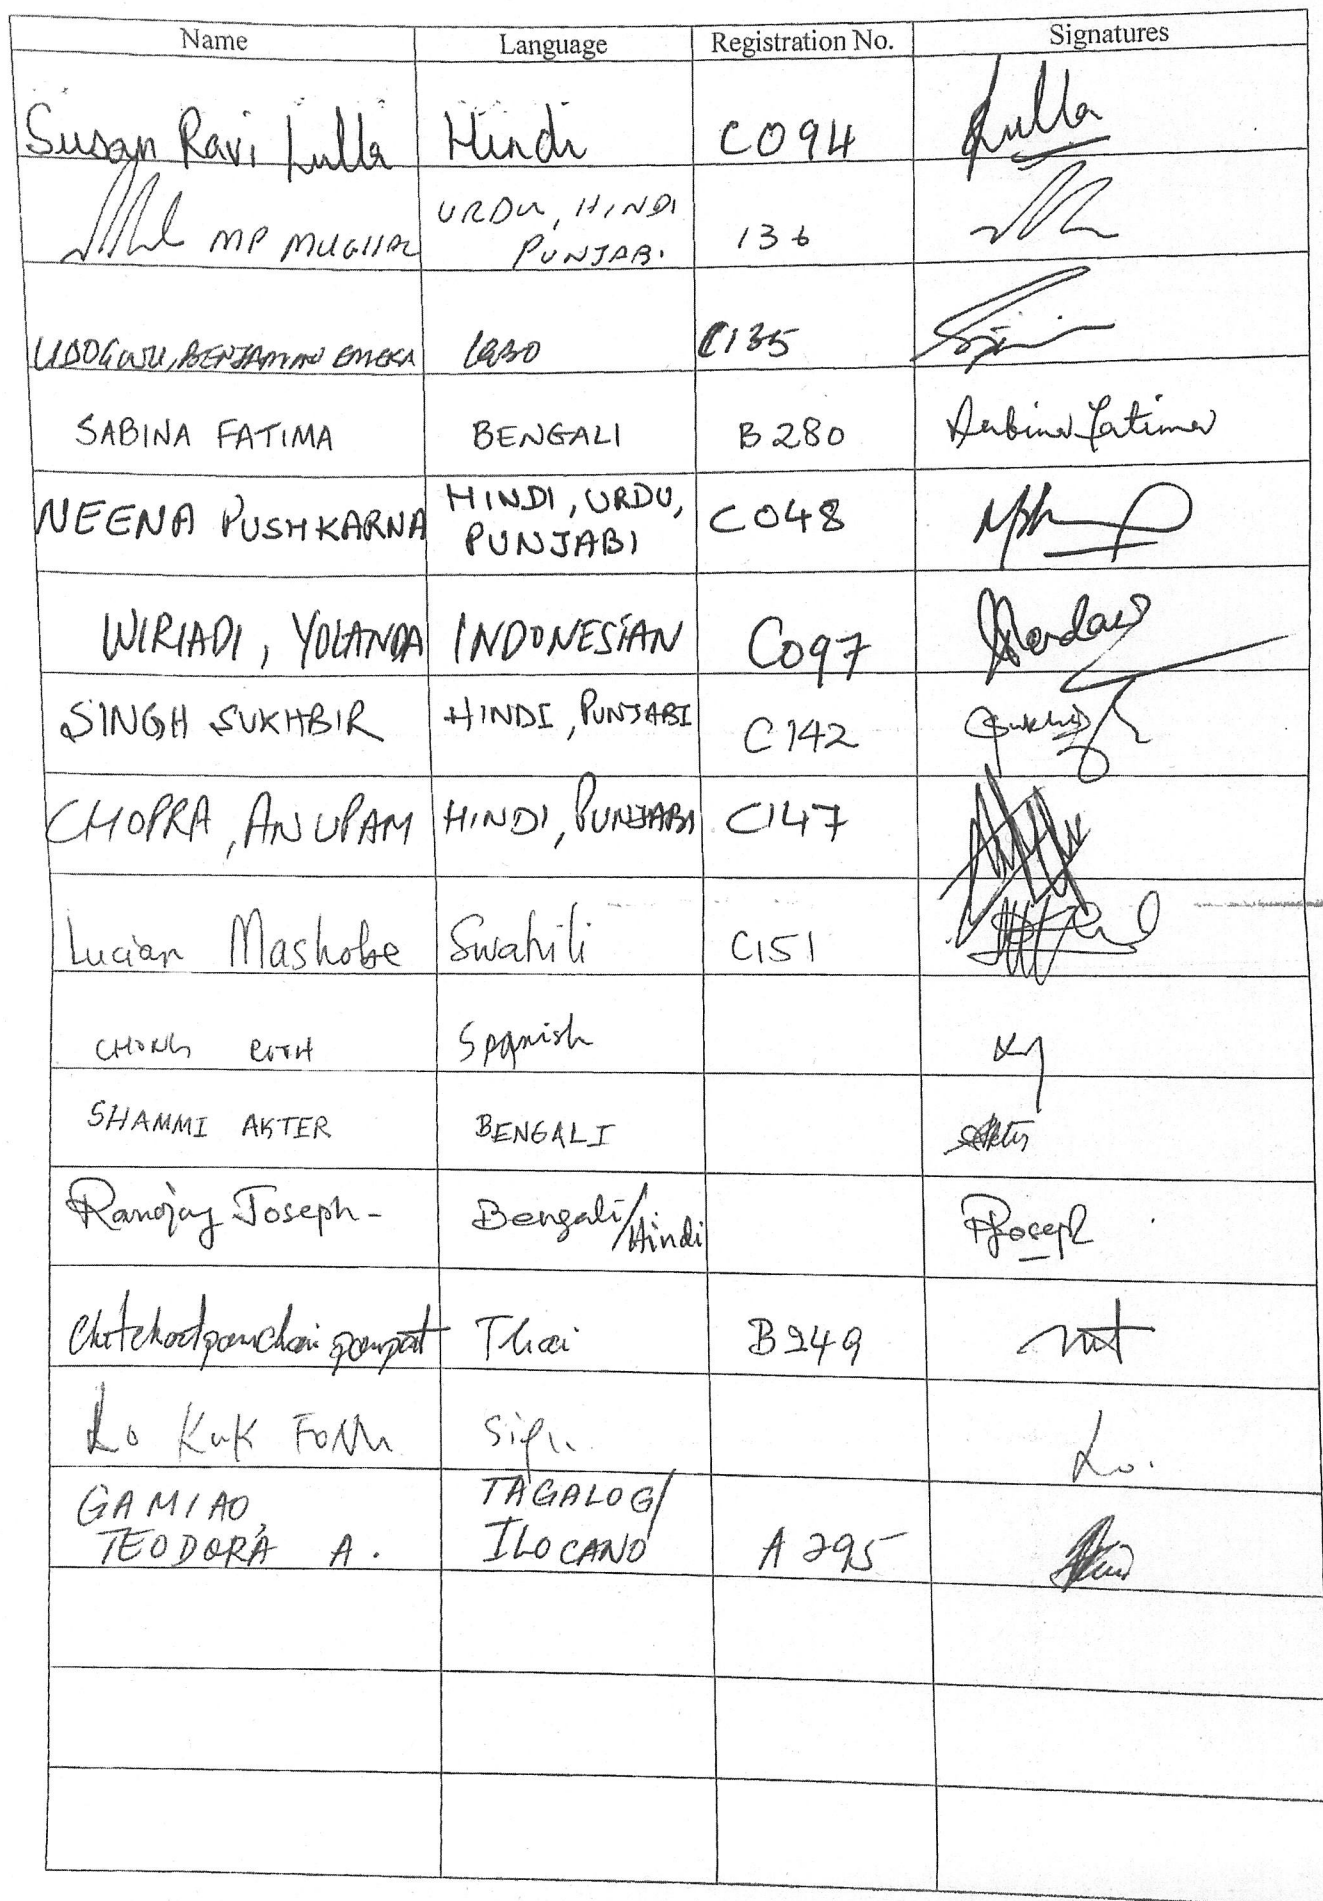 Name Language Registration No. Signatures
Susan Ravi Lulla Hindi C094 Lulla
MP MUGHAL URDU, HINDI 136
PUNJABI.
UDOGWU, BENJAMIN EMEKA IGBO C135
SABINA FATIMA BENGALI B280 Sabina Fatima
NEENA PUSHKARNA HINDI, URDU, C048
PUNJABI
WIRIADI, YOLANDA INDONESIAN C097
SINGH SUKHBIR HINDI, PUNJABI C142 Sukhbir
CHOPRA, ANUPAM HINDI, PUNJABI C147
Lucian Mashobe Swahili C151
CHONG RUTH Spanish
SHAMMI AKTER BENGALI Akter
Ranojay Joseph- Bengali/ RJoseph
Hindi
Thai B249
Lo Kuk Sign. Lo.
GAMIAO, TAGALOG/
TEODORA A. ILOCANO A295